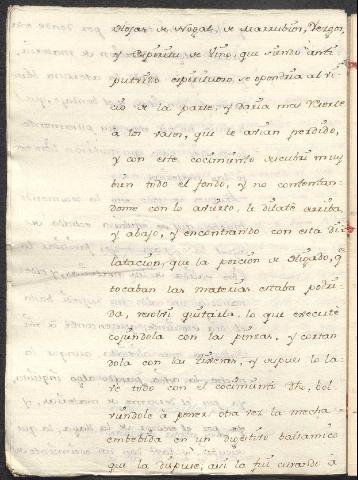 Hojas de Nogal, de Marrubios, Vergon,
y Espiritu de Vino, que siendo anti
putrido espirituoso, se opondria al vi
cio de la parte, y daria mas Resorte
à los vasos, que le avian perdido,
y con este cocimiento descubri muy
bien todo el fondo, y no contentan-
dome con lo avierto, le dilatè arriba,
y abajo, y encontrando con esta di
latacion, que la porcion de Higado, q.e
tocaban las materias estaba podri-
da, resolvi quitarla, lo que executè
cojiendola con las pinzas, y cortan
dola con las tixeras, y despues lo la-
vè todo con el cocimiento dho, bol
viendole à poner otra vez la mecha
embebida en un digestivo balsamico
que la dispuse; asi la fui curando à